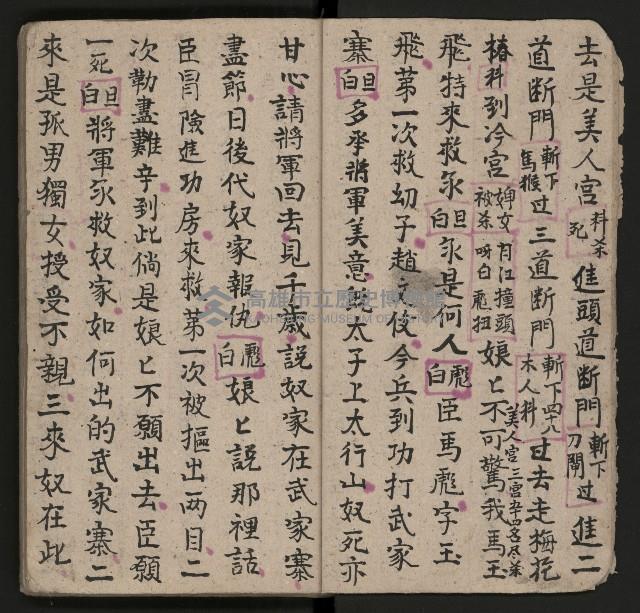 去是美人宮科杀死進頭道断門斬下刀閘过進二
道断門斬下馬猴过三道断門斬下四八木人科过去走梅花
椿科到冷宮婢女被杀月江撞頭呀白彪扭娘匕不可驚我馬玉
美人宮三宮
飛特來救汞旦白汞是何人彪白臣馬彪字玉
飛第一次救幼子趙
兵到功打武家
寨旦白多承將軍美意
太子上太行山奴死亦
甘心請將軍回去見千歲說奴家在武家寨
盡節日後代奴家報仇彪白娘匕說那裡話
臣冐險進功房來救第一次被摳出两目二
次勒盡難辛到此倘是娘匕不願出去臣願
一死旦白將軍汞救奴家如何出的武家寨二
來是孤男獨女授受不親三來奴在此
高雄市立歷史博物館
KAOHSIUNG MUSEUM OF HISTORY